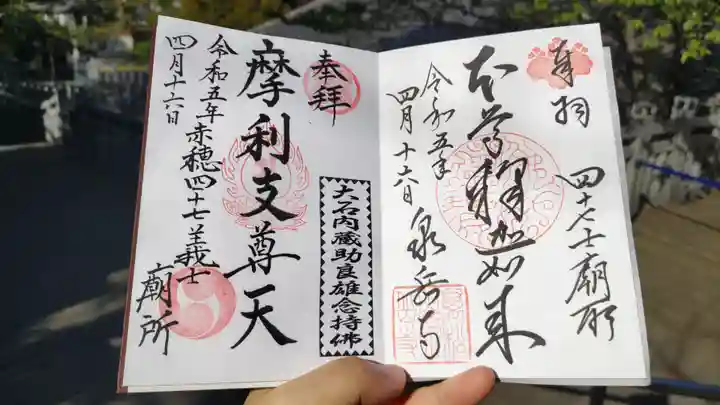 奉拝
四十七士廟所
本尊釋迦如来
令和五年
四月十六日
泉岳寺
奉拝
大石内蔵助良雄念持佛
摩利支尊天
赤穂四十七義士
廟所
令和五年
四月十六日